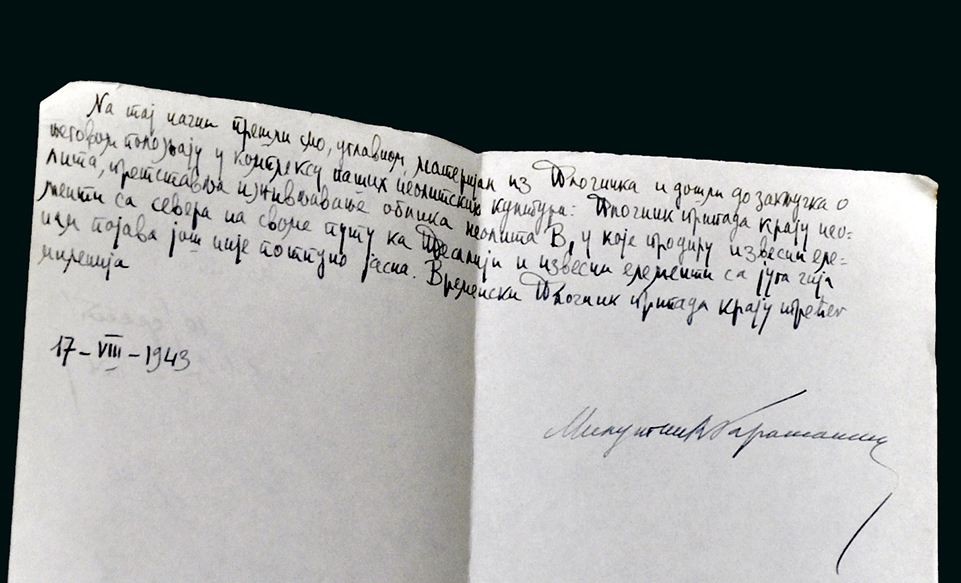 На тај начин прешли смо, углавном, материјал из Плочника и дошли до закључка о
његовом положају у контексу наших неолитских култура: Плочник припада крају нео-
лита, претставља изживљавање облика неолита В, у које продиру извесни еле-
менти са севера на своме путу ка Тесалији и извесни елементи са југа чија
нам појава још није потпуно јасна. Временски Плочник припада крају трећег
миленија
17-VIII-1943
Милутин Гарашанин